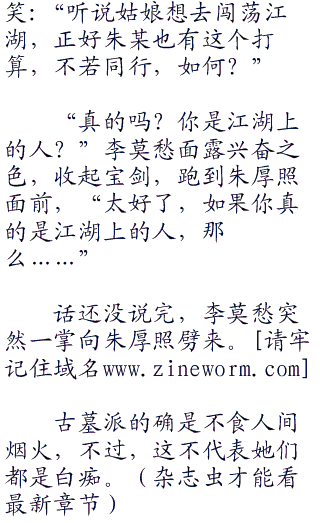 笑：“听说姑娘想去闯荡江
湖，正好朱某也有这个打
算，不若同行，如何？”
“真的吗？你是江湖上
的人？”李莫愁面露兴奋之
色，收起宝剑，跑到朱厚照
面前，“太好了，如果你真
的是江湖上的人，那
么……”
话还没说完，李莫愁突
然一掌向朱厚照劈来。[请牢
记住域名www.zineworm.com]
古墓派的确是不食人间
烟火，不过，这不代表她们
都是白痴。（杂志虫才能看
最新章节）